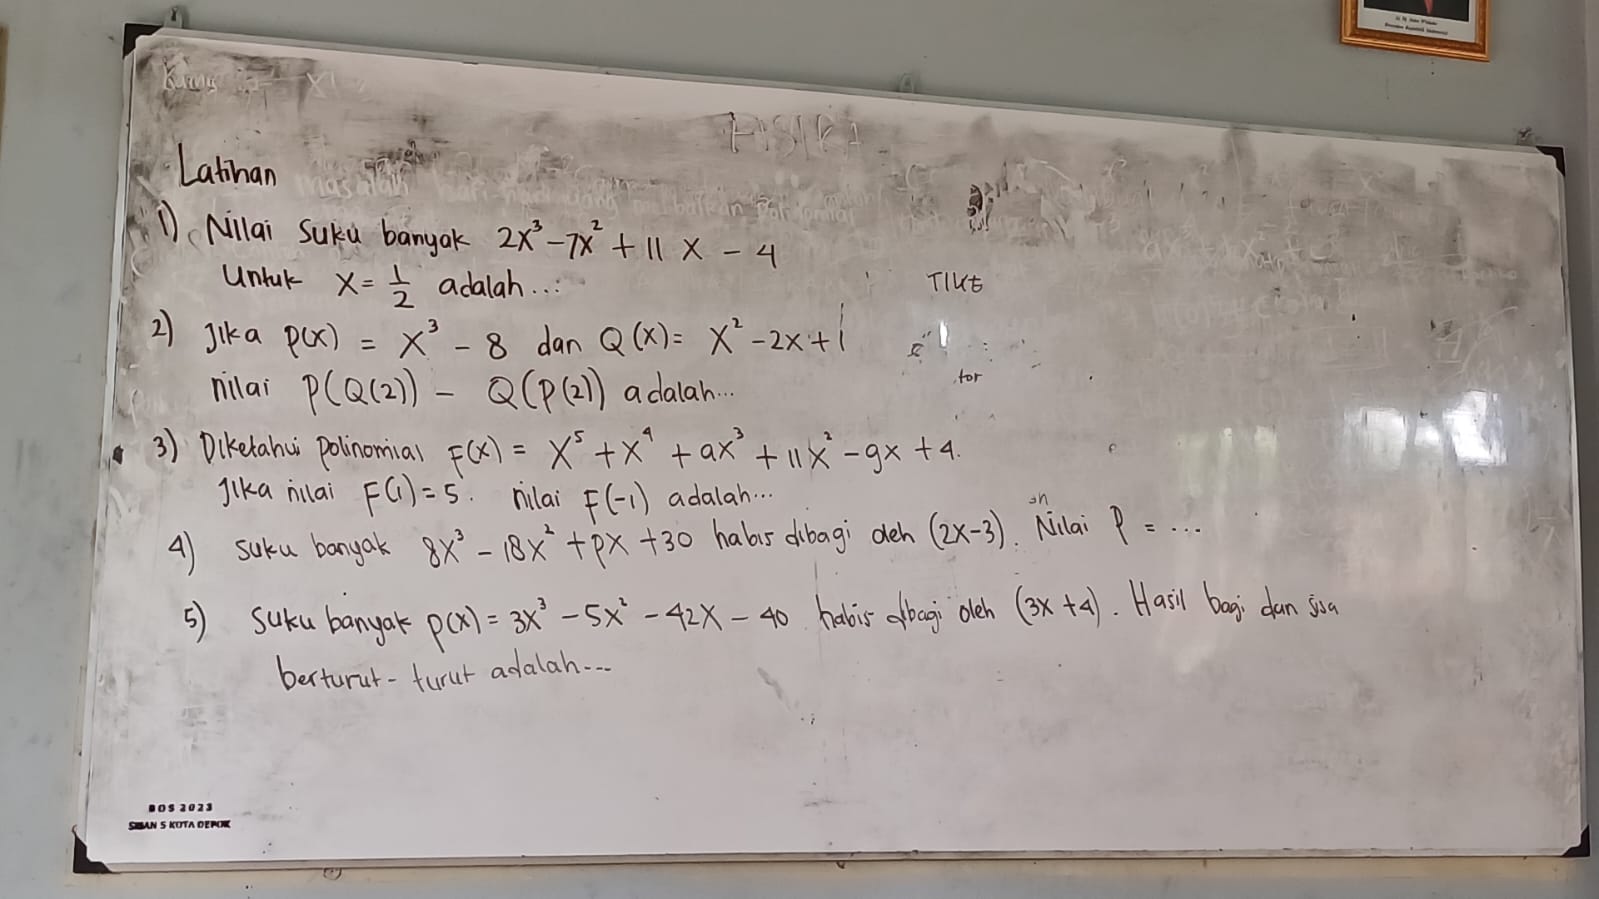 FISIKA
Latihan
1) Nilai suku banyak 2x³ - 7x² + 11x - 4
Untuk x = 1/2 adalah...
TIKE
2) Jika p(x) = x³ - 8 dan Q(x) = x² - 2x + 1
nilai P(Q(2)) - Q(P(2)) adalah...
tor
3) Diketahui polinomial F(x) = x⁵ + x⁴ + ax³ + 11x² - 9x + 4.
Jika nilai F(1) = 5. nilai F(-1) adalah...
4) Suku banyak 8x³ - 18x² + px + 30 habis dibagi oleh (2x-3). Nilai P = ...
5) Suku banyak p(x) = 3x³ - 5x² - 42x - 40 habis dbagi oleh (3x + 4). Hasil bagi dan sisa
berturut-turut adalah...
BOS 2023
SMAN 5 KOTA DEPOK